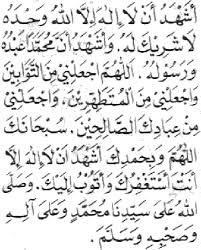 أَشْهَدُ أَنْ لَا إِلٰهَ إِلَّا اللهُ وَحْدَهُ
لَا شَرِيْكَ لَهُ . وَأَشْهَدُ أَنَّ مُحَمَّدًا عَبْدُهُ
وَرَسُوْلُهُ . اَللّٰهُمَّ اجْعَلْنِيْ مِنَ التَّوَّابِيْنَ
وَاجْعَلْنِيْ مِنَ الْمُتَطَهِّرِيْنَ، وَاجْعَلْنِيْ
مِنْ عِبَادِكَ الصَّالِحِيْنَ . سُبْحَانَكَ
اللّٰهُمَّ وَبِحَمْدِكَ أَشْهَدُ أَنْ لَا إِلٰهَ إِلَّا
أَنْتَ أَسْتَغْفِرُكَ وَأَتُوْبُ إِلَيْكَ . وَصَلَّى
اللهُ عَلَى سَيِّدِنَا مُحَمَّدٍ وَعَلَى آلِهِ
وَصَحْبِهِ وَسَلَّمَ .